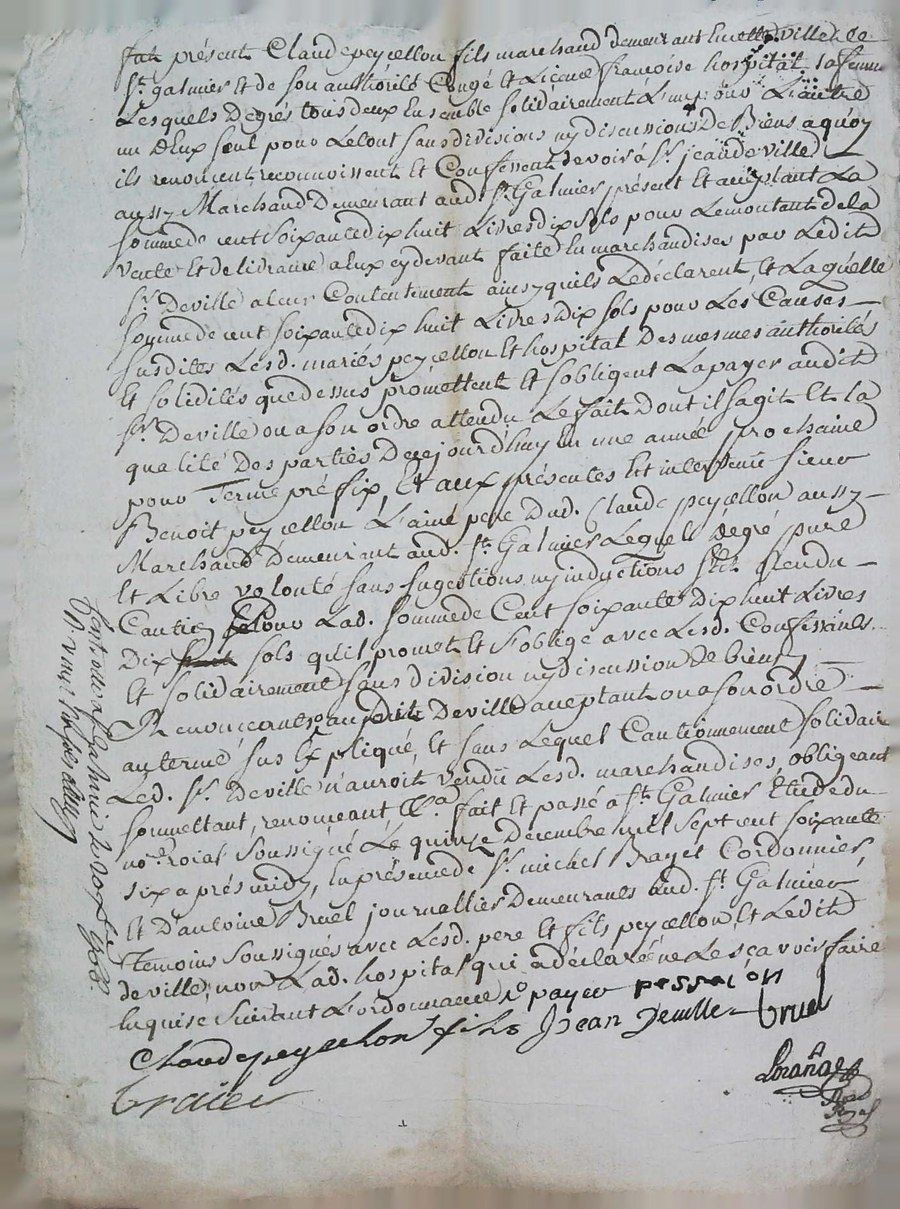 fut présent Claude peycellon fils marchand demeurant en cette ville de
St. galmier et de son authorité Congé et Licence francoise hospital sa femme
Lesquels degrés tous deux Ensemble solidairement L'un pour L'autre
un dEux seul pour Letout sans divisions ny discussions De Biens a quoy
ils renoncent, reconnoissent Et Confessent devoir à Sr. jean deville
aussy Marchand Demeurant aud. St. Galmier présent Et acceptant La
somme de cent soixante dix huit Livres dix sols pour Le montant de la
vente Et delivrance a Eux cy devant faite En marchandises par Ledit
Sr. Deville a leur Contentement ainsy quils Le déclarent, Et Laquelle
somme de cent soixante dix huit Livres dix sols pour Les Causes
susdites Lesd. mariés peycellon Et hospital Des mesmes authorités
Et solidités que dessus promettent Et sobligent La payer audit
Sr. Deville ou a son ordre attendu Le fait Dont il sagit Et la
qualité Des parties De cejourd'huy En une année prochaine
pour Terme préfix, Et aux présentes Est intervenu sieur
Benoit peycellon L'ainé pere Dud. Claude peycellon aussy
Marchand Demeurant aud. St. Galmier Lequel De gré pure
Et Libre volonté sans sugestions ny inductions s'est Rendu
Caution pour Lad. somme de Cent soixante Dix huit Livres
Dix sols qu'il promet Et s'oblige avec Lesd. Confessants
Et solidairement sans division ny discussion de biens y
Renoncants, audit Deville acceptant ou a son ordre
au terme sus Expliqué, Et sans Lequel Cautionnement solidaire
Led. Sr. Deville n'auroit vendu Lesd. marchandises, obligeant
sommettant, renonceant, &a. fait Et passé a St. Galmier Etude du
nore. roial soussigné Le quinze Decembre mil sept cent soixante
six après midy, En présence de Sr. michel Brayet Cordonnier
Et D'antoine Bruel journallier Demeurants aud. St. Galmier
Temoins soussignés avec Lesd. pere Et fils peycellon Et Ledit
deville, non Lad. hospital qui a déclaré ne Le sçavoir faire
Enquise suivant L'ordonnance
Claude peycellon fils Jean Deville bruel